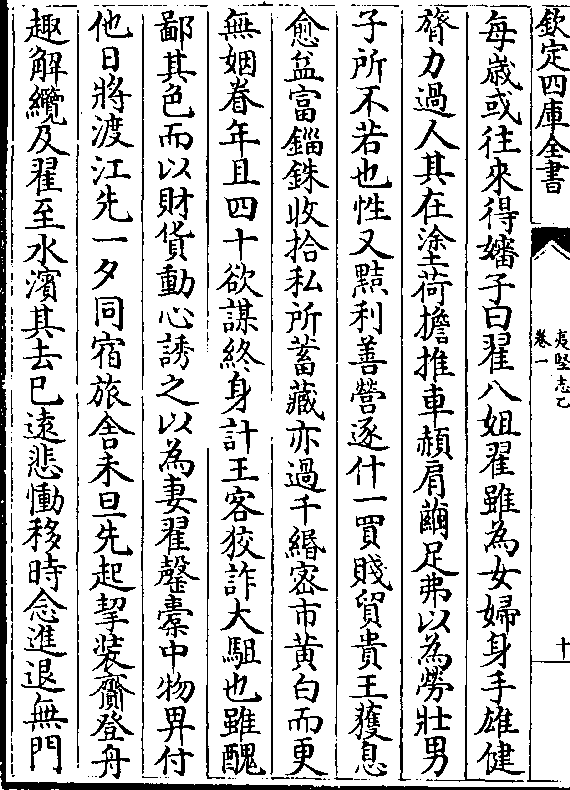 欽定四庫全書
夷堅志乙
卷一
十
每歲或往來得嬸子曰翟八姐翟雖為女婦身手雄健
膂力過人其在塗荷擔推車頳肩繭足弗以為勞壯男
子所不若也性又黠利善營逐什一買賤貿貴王獲息
愈益富錙銖收拾私所蓄藏亦過千緡密市黄白而更
無姻眷年且四十欲謀終身計王客狡詐大駔也雖醜
鄙其色而以財貨動心誘之以為妻翟罄橐中物畀付
他日將渡江先一夕同宿旅舍未旦先起挈装齎登舟
趣解纜及翟至水濱其去已遠悲慟移時念進退無門